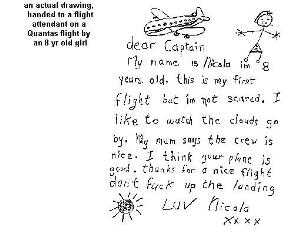 an actual drawing,
handed to a flight
attendant on a
Quantas flight by
an 8 yr old girl
dear Captain
My name is Nicola im 8
years old. this is my first
flight but im not scared. I
like to watch the clouds go
by. My mum says the crew is
nice. I think your plane is
good. thanks for a nice flight
don't fuck up the landing
Luv Nicola
xxxx